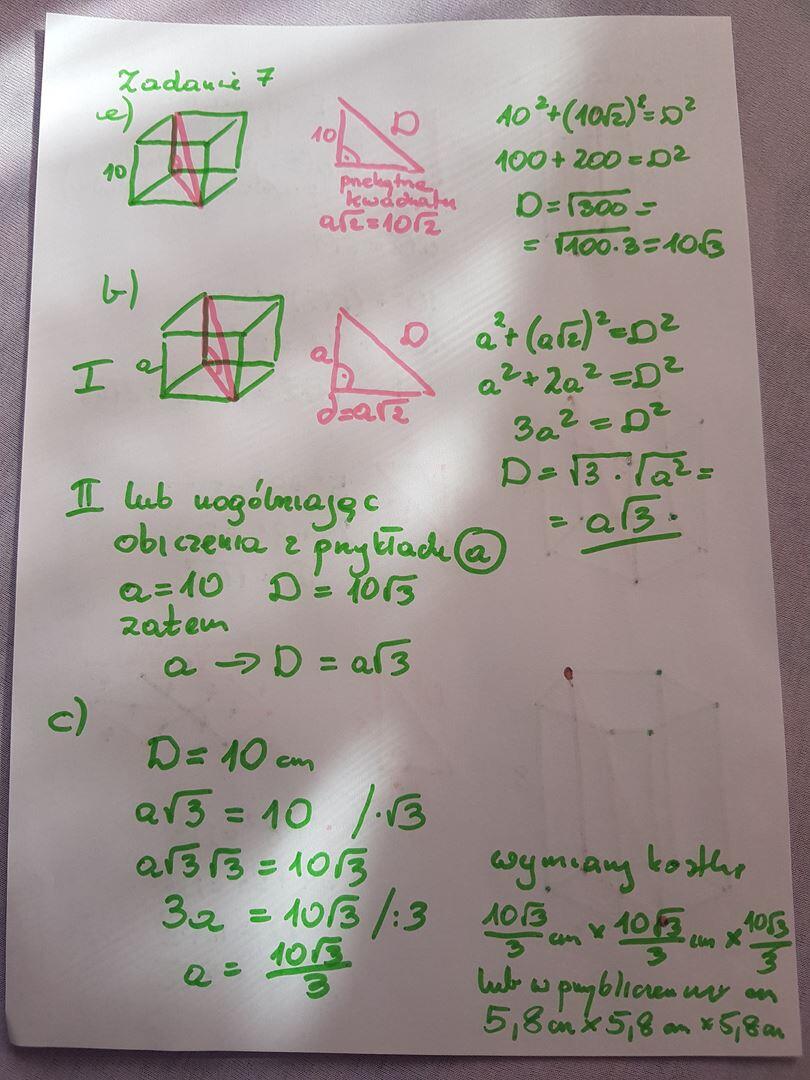 Zadanie 7
a)
10
10
D
przekątna
kwadratu
a√2=10√2
10²+(10√2)²=D²
100+200=D²
D=√300=
=√100·3=10√3
b)
I
a
a
D
d=a√2
a²+(a√2)²=D²
a²+2a²=D²
3a²=D²
D=√3·√a²=
=a√3.
II lub uogólniając
obliczenia z przykładu a
a=10 D=10√3
zatem
a → D=a√3
c)
D=10 cm
a√3=10 /·√3
a√3√3=10√3
3a=10√3 /:3
a=10√3/3
wymiary kostki
10√3/3 cm × 10√3/3 cm × 10√3/3
lub w przybliżeniu w cm
5,8cm×5,8cm×5,8cm